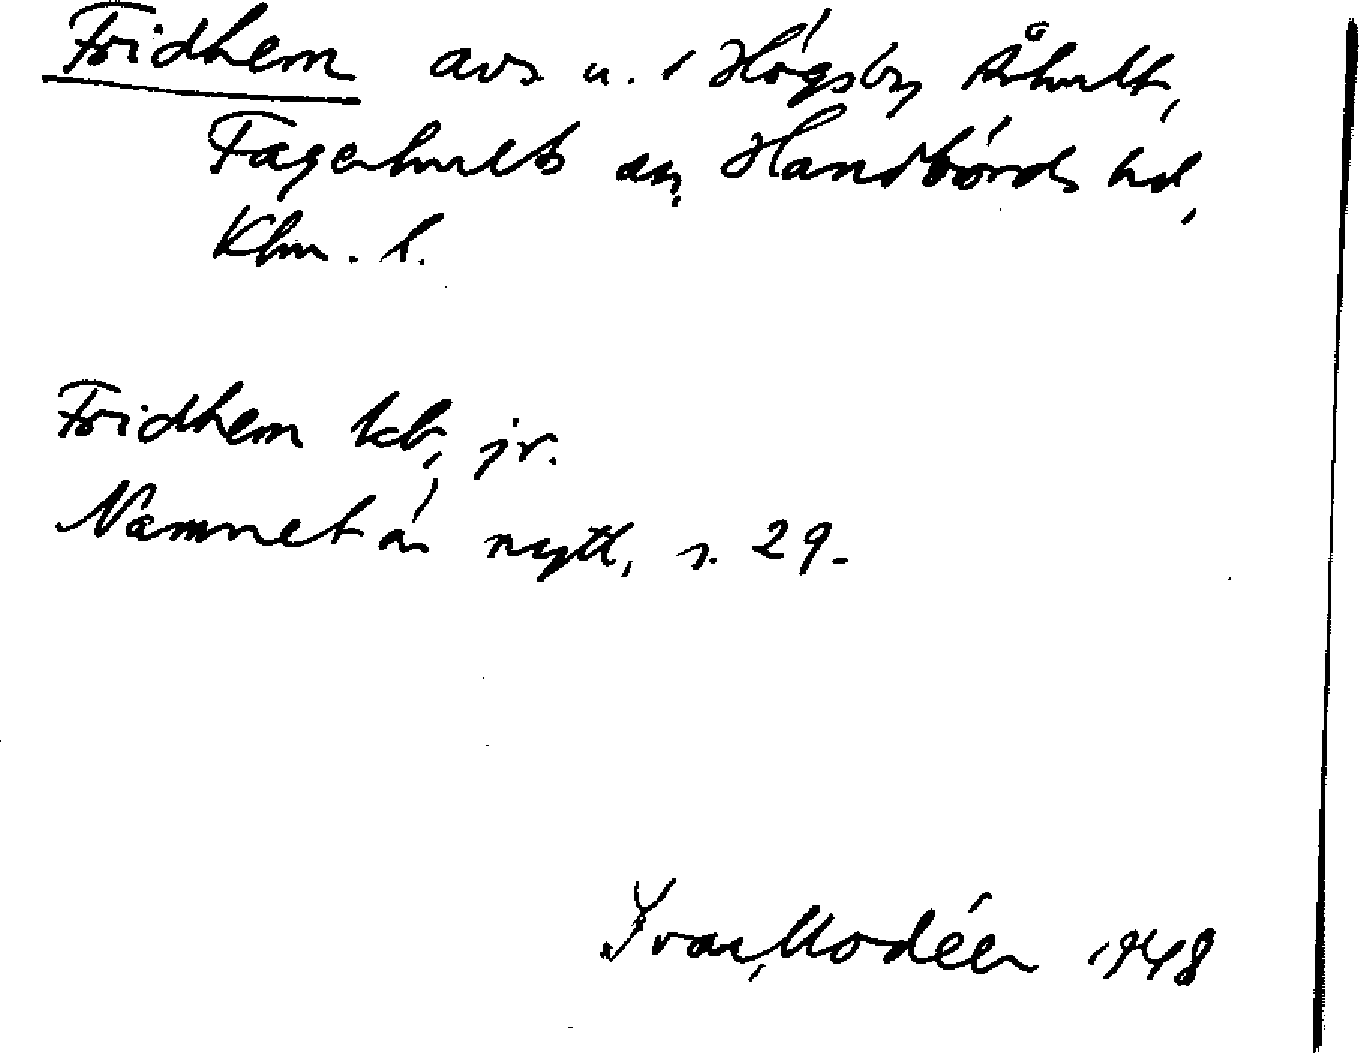 Fridhem avs u. i Högsby Åhult,
Fagerhults sn, Handbörds hd,
Klm. l.
Fridhem kb, jr.
Namnet är nytt, s. 29.
Ivar Modéer 1948